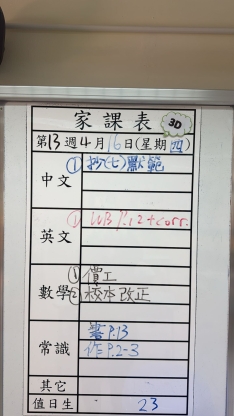 家課表
3D
第13週4月16日(星期四)
中文
①抄(七)默範
英文
① WB P.12 + corr.
數學
①價工
②校本改正
常識
書P.13
作P.2-3
其它
值日生
23